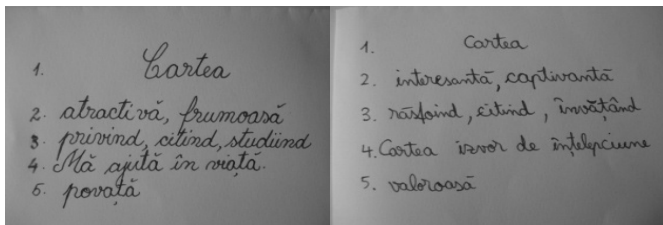 1. Cartea
2. atractivă, frumoasă
3. privind, citind, studiind
4. Mă ajută în viață.
5. povață
1. Cartea
2. interesantă, captivantă
3. răsfoind, citind, învățând
4. Cartea izvor de înțelepciune
5. valoroasă